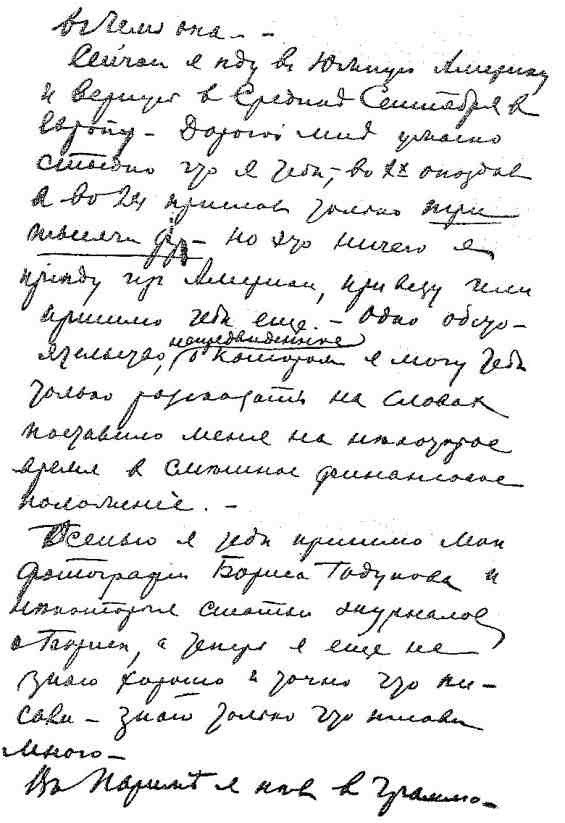 въ чемъ она. —
Сейчас я иду въ Южную Америку
и вернусь в Средних Сентября в
Европу — Дорогой мой ужасно
стыдно что я тебе, во 1х опоздав
а во 2х прислав только три
тысячи фр — но это ничего я
приеду из Америки, привезу или
пришлю тебе еще. — Одно обсто-
ятельство, непредвиденное о котором я могу тебе
только рассказать на словах
поставило меня на некоторое
время в смешное финансовое
положенiе. —
Осенью я тебе пришлю мои
фотографiи Бориса Годунова и
некоторые статьи журналов
о Борисе, а теперь я еще не
знаю хорошо и точно что пи-
сали — знаю только что писали
много —
Въ Парижѣ я пѣл в Граммо-